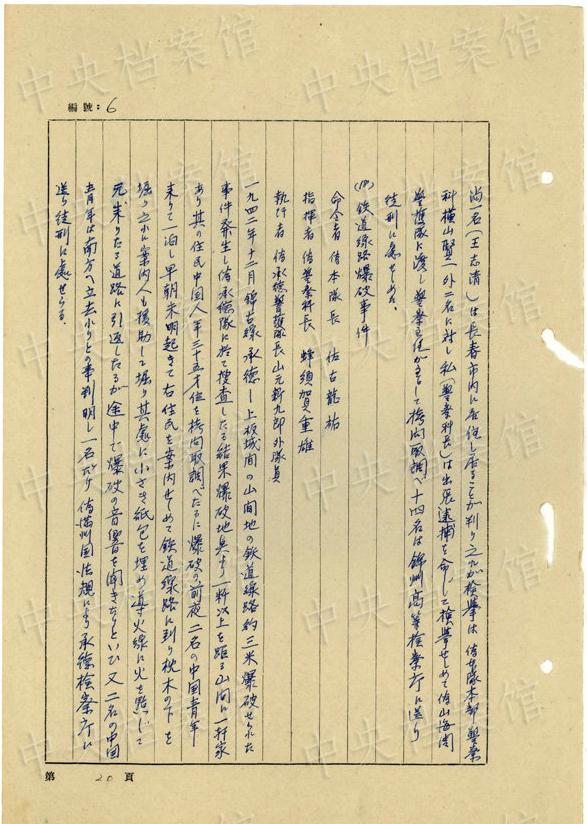 中央档案馆
編號：6
尚一名（王志清）は長春市内に居住し居ることが判り之が検挙は偽本隊本部警察
科横山賢一外二名に対し私（警察科長）は出張逮捕を命して検挙せしめて偽山海関
警護隊に渡し警察主任が主として拷問取調べ十四名は錦州高等検察庁に送り
徒刑に處せしめた。
鉄道線路爆破事件
命令者 偽本隊長 佐古龍祐
指揮者 偽警察科長 蜂須賀重雄
執行者 偽承徳警護隊長 山元新九郎外隊員
一九四二年十二月錦古線承徳－上板城間の山間地の鉄道線路約三米爆破せられた
事件発生し偽承徳隊に於て捜査したる結果爆破地点より一粁以上を距る山間に一軒家
あり其の住民中国人年三十五才位を拷問取調べたるに爆破の前夜二名の中国青年
来りて一泊し早朝未明起きて右住民を案内せしめて鉄道線路に到り枕木の下を
掘り之に案内人も援助して掘り其處に小さき紙包を埋め導火線に火を点じて
元来りたる道路に引返したるが途中で爆破の音響を聞きたりといひ又二名の中国
青年は南方へ立去れりとの事判明し一名だけ偽満州国法規により承徳検察庁に
送り徒刑に處せらる。
第 20 頁